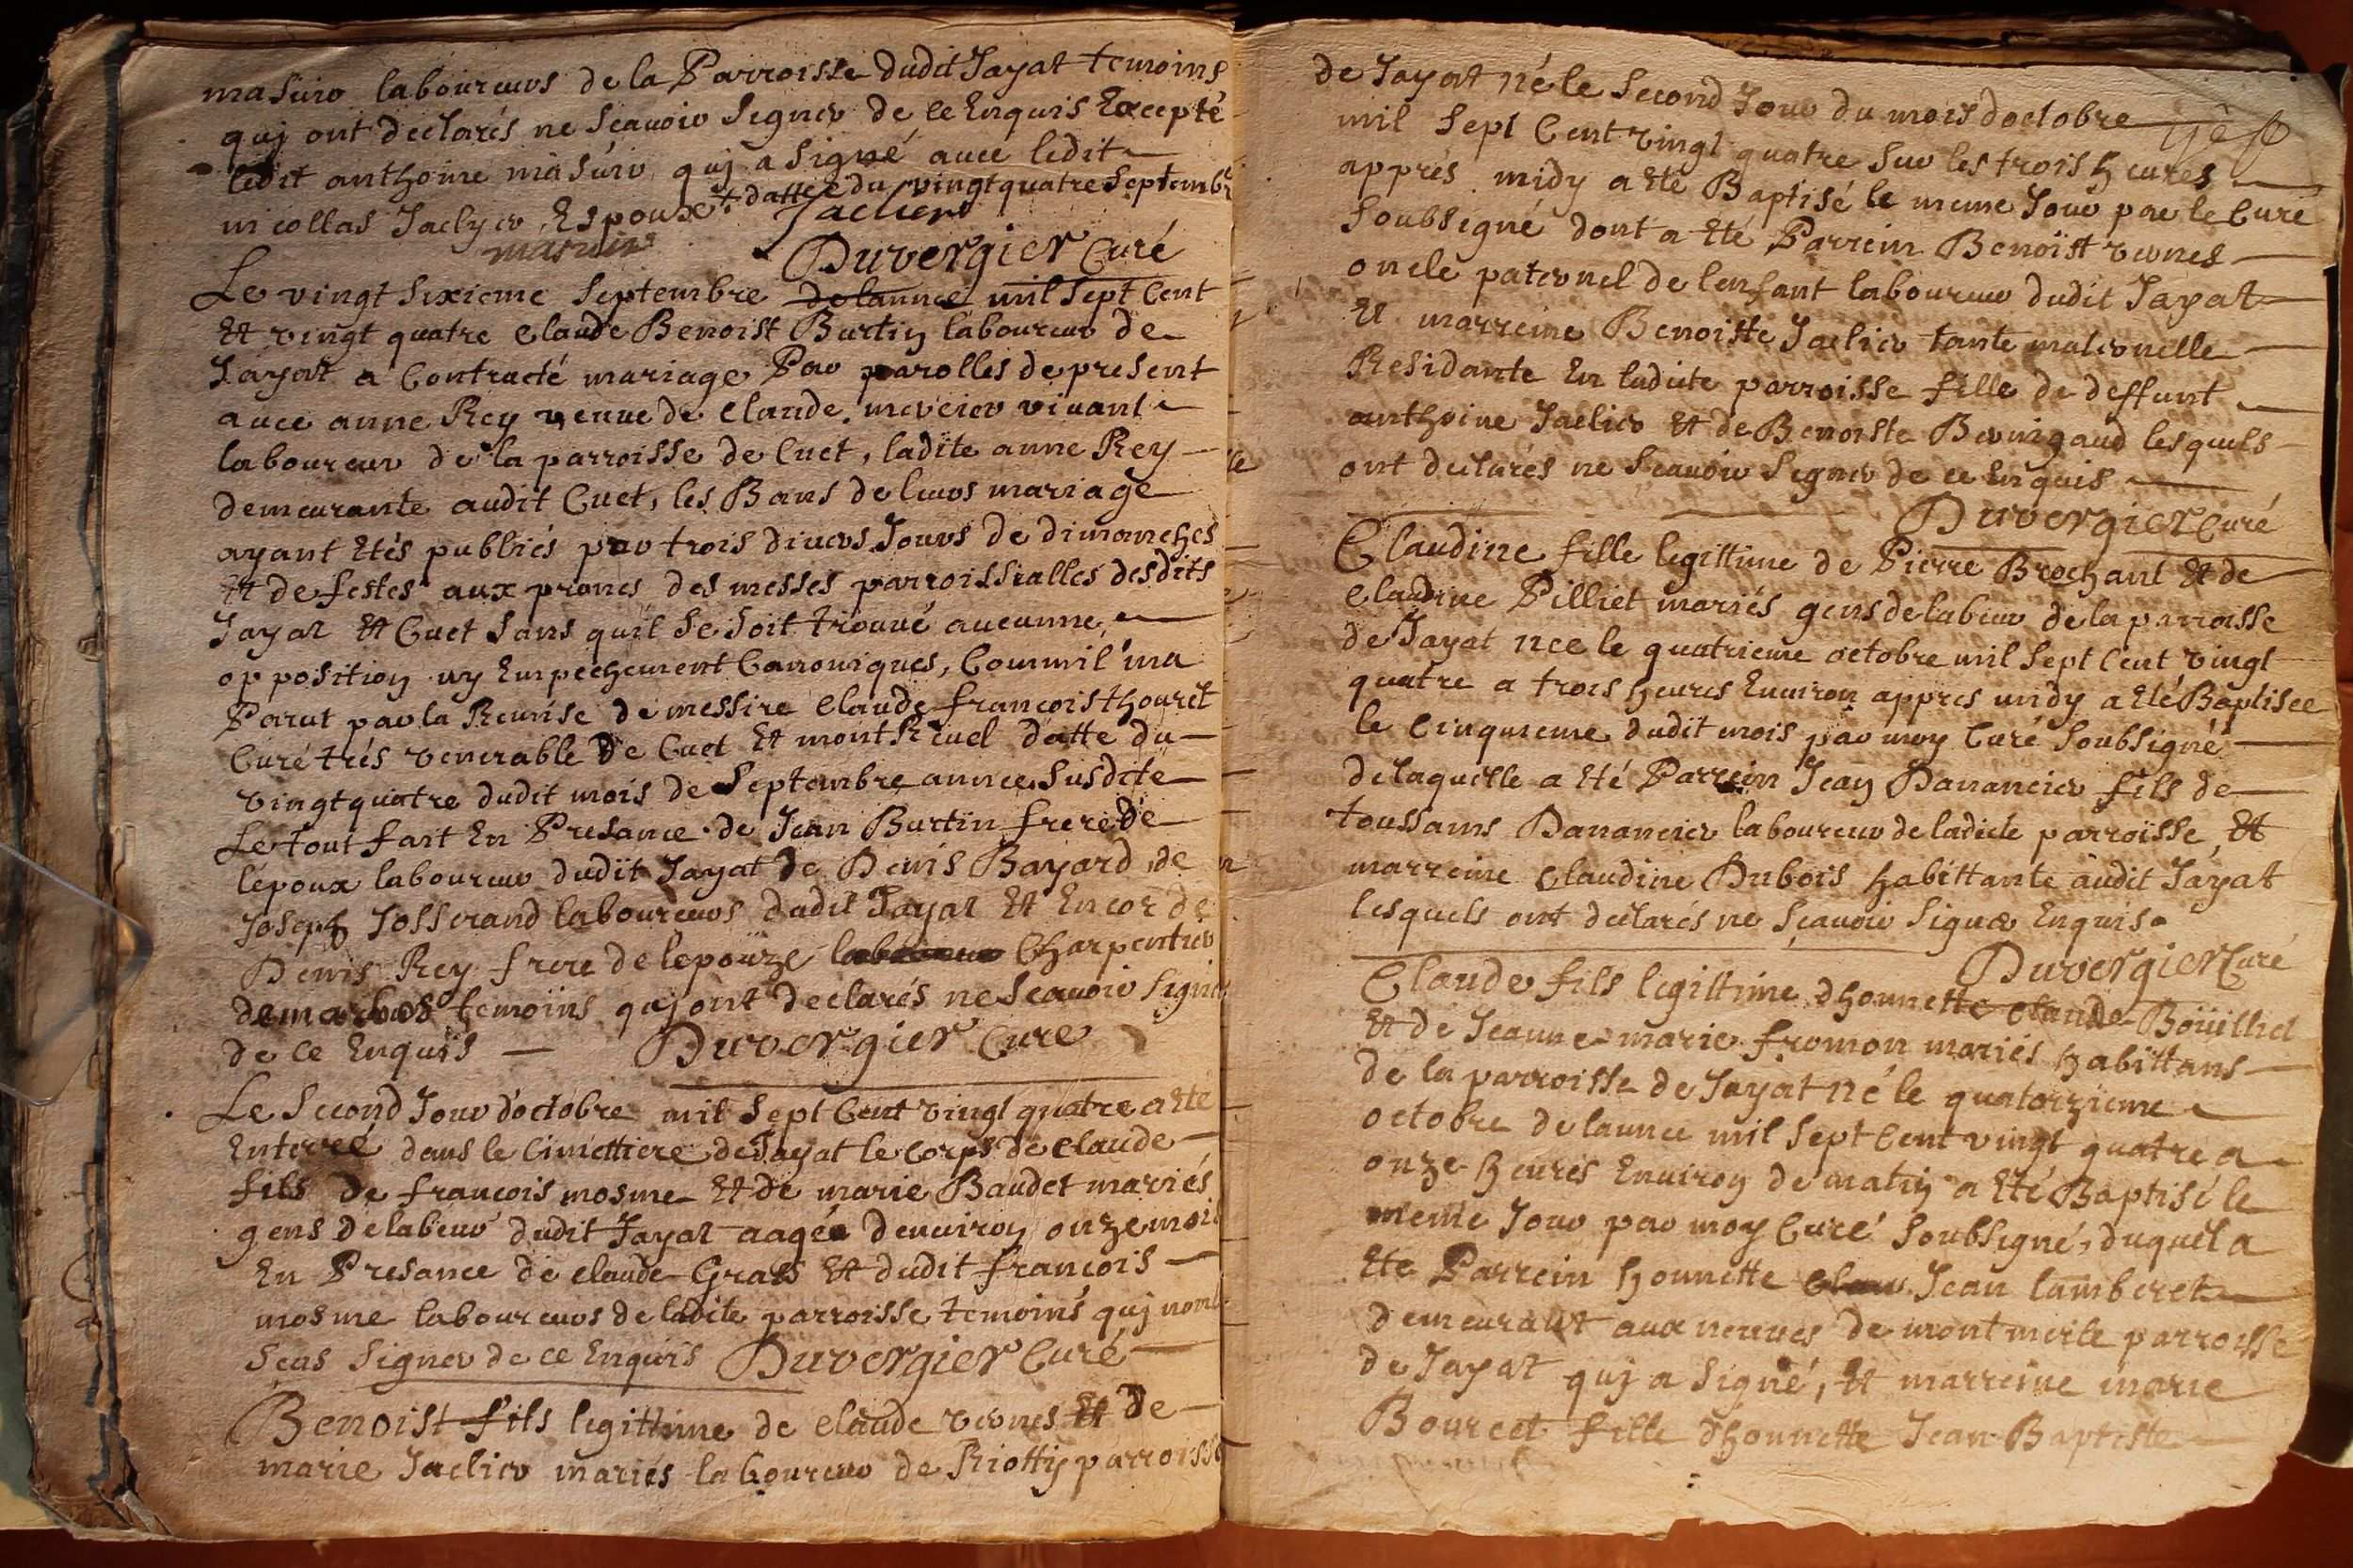 masuir laboureurs de la Parroisse dudit Jayat temoins
quj ont declarés ne Scauoir Signer de ce Enquis Excepté
ledit anthoine masuir quj a signé auec ledit
nicollas Jaclyer Espoux + dattée du vingtquatre Septembr
masuir Jaclier
Duvergier Curé
Le vingt Sixieme Septembre de lannee mil Sept Cent
Et vingt quatre Claude Benoist Burtin laboureur de
Jayat a Contracté mariage Par parolles de present
auec anne Rey veuue de Claude mercier viuant
laboureur de la parroisse de Cuet, ladite anne Rey
demeurante audit Cuet, les Bans de leurs mariage
ayant Etés publiés par trois diuers Jours de dimanches
Et de festes aux prones des messes parroissialles desdits
Jayat Et Cuet Sans quil Se Soit trouué aucunne
opposition ny Empechement Canoniques, Commil ma
Parut par la Remise de messire Claude francois thouret
Curé trés venerable De Cuet Et montReuel datte du
vingtquatre dudit mois de Septembre annee Susdite
Le tout fait En Presance de Jean Burtin frere de
lépoux laboureur dudit Jayat de Denis Bayard, de
Joseph Josserand laboureurs dudit Jayat Et Encor de
Denis Rey frere de lepouze laboureur Charpentier
de marbos temoins quj ont declarés ne Scauoir Signer
de ce Enquis Duvergier Curé
Le Second Jour doctobre mil Sept Cent vingt quatre a Eté
Enterré dans le Cimettiere de Jayat le Corps de Claude
fils de francois mosme Et de marie Baudet mariés
gens de labeur dudit Jayat aagée denuiron onze mois
En Presance de Claude Gras Et dudit francois
mosme laboureurs de ladite parroisse temoins quj nont
Seus Signer de ce Enquis Duvergier Curé
Benoist fils legittime de Claude vernes Et de
marie Jaclier mariés laboureur de Riottij parroisse
de Jayat né le Second Jour du mois doctobre
mil Sept Cent vingt quatre Sur les trois heures
apprés midy a Eté Baptisé le meme Jour par le Curé
Soubsigné dont a Eté Parrein Benoist vernes
oncle paternel de lenfant laboureur dudit Jayat
Et marreine Benoitte Jaclier tante maternelle
Residante En ladite parroisse fille de deffunt
anthoine Jaclier Et de Benoiste Bernigaud lesquels
ont declarés ne Scauoir Signer de ce Enquis
Duvergier Curé
Claudine fille legittime de Pierre Brochant Et de
Claudine Pilliet mariés gens de labeur de la parroisse
de Jayat nee le quatrieme octobre mil Sept Cent vingt
quatre a trois heures Enuiron appres midy a Eté Baptisee
le Cinquieme dudit mois par moy Curé Soubsigné
de laquelle a Eté Parrein Jean Danancier fils de
toussains Danancier laboureur de ladicte parroisse, Et
marreine Claudine Dubois habittante audit Jayat
lesquels ont declarés ne Sçauoir Signer Enquis.
Duvergier Curé
Claude fils legittime dhonnette Claude Boüilliel
Et de Jeanne marie fromon mariés habittans
de la parroisse de Jayat né le quatorzieme
octobre de lannee mil Sept Cent vingt quatre a
onze heures Enuiron de matin a Eté Baptisé le
meme Jour par moy Curé Soubsigné, duquel a
Eté Parrein honnette Clau Jean lamberet
demeurant aux neuues de montmerle parroisse
de Jayat quj a Signé, Et marreine marie
Bourcet fille dhonnette Jean Baptiste